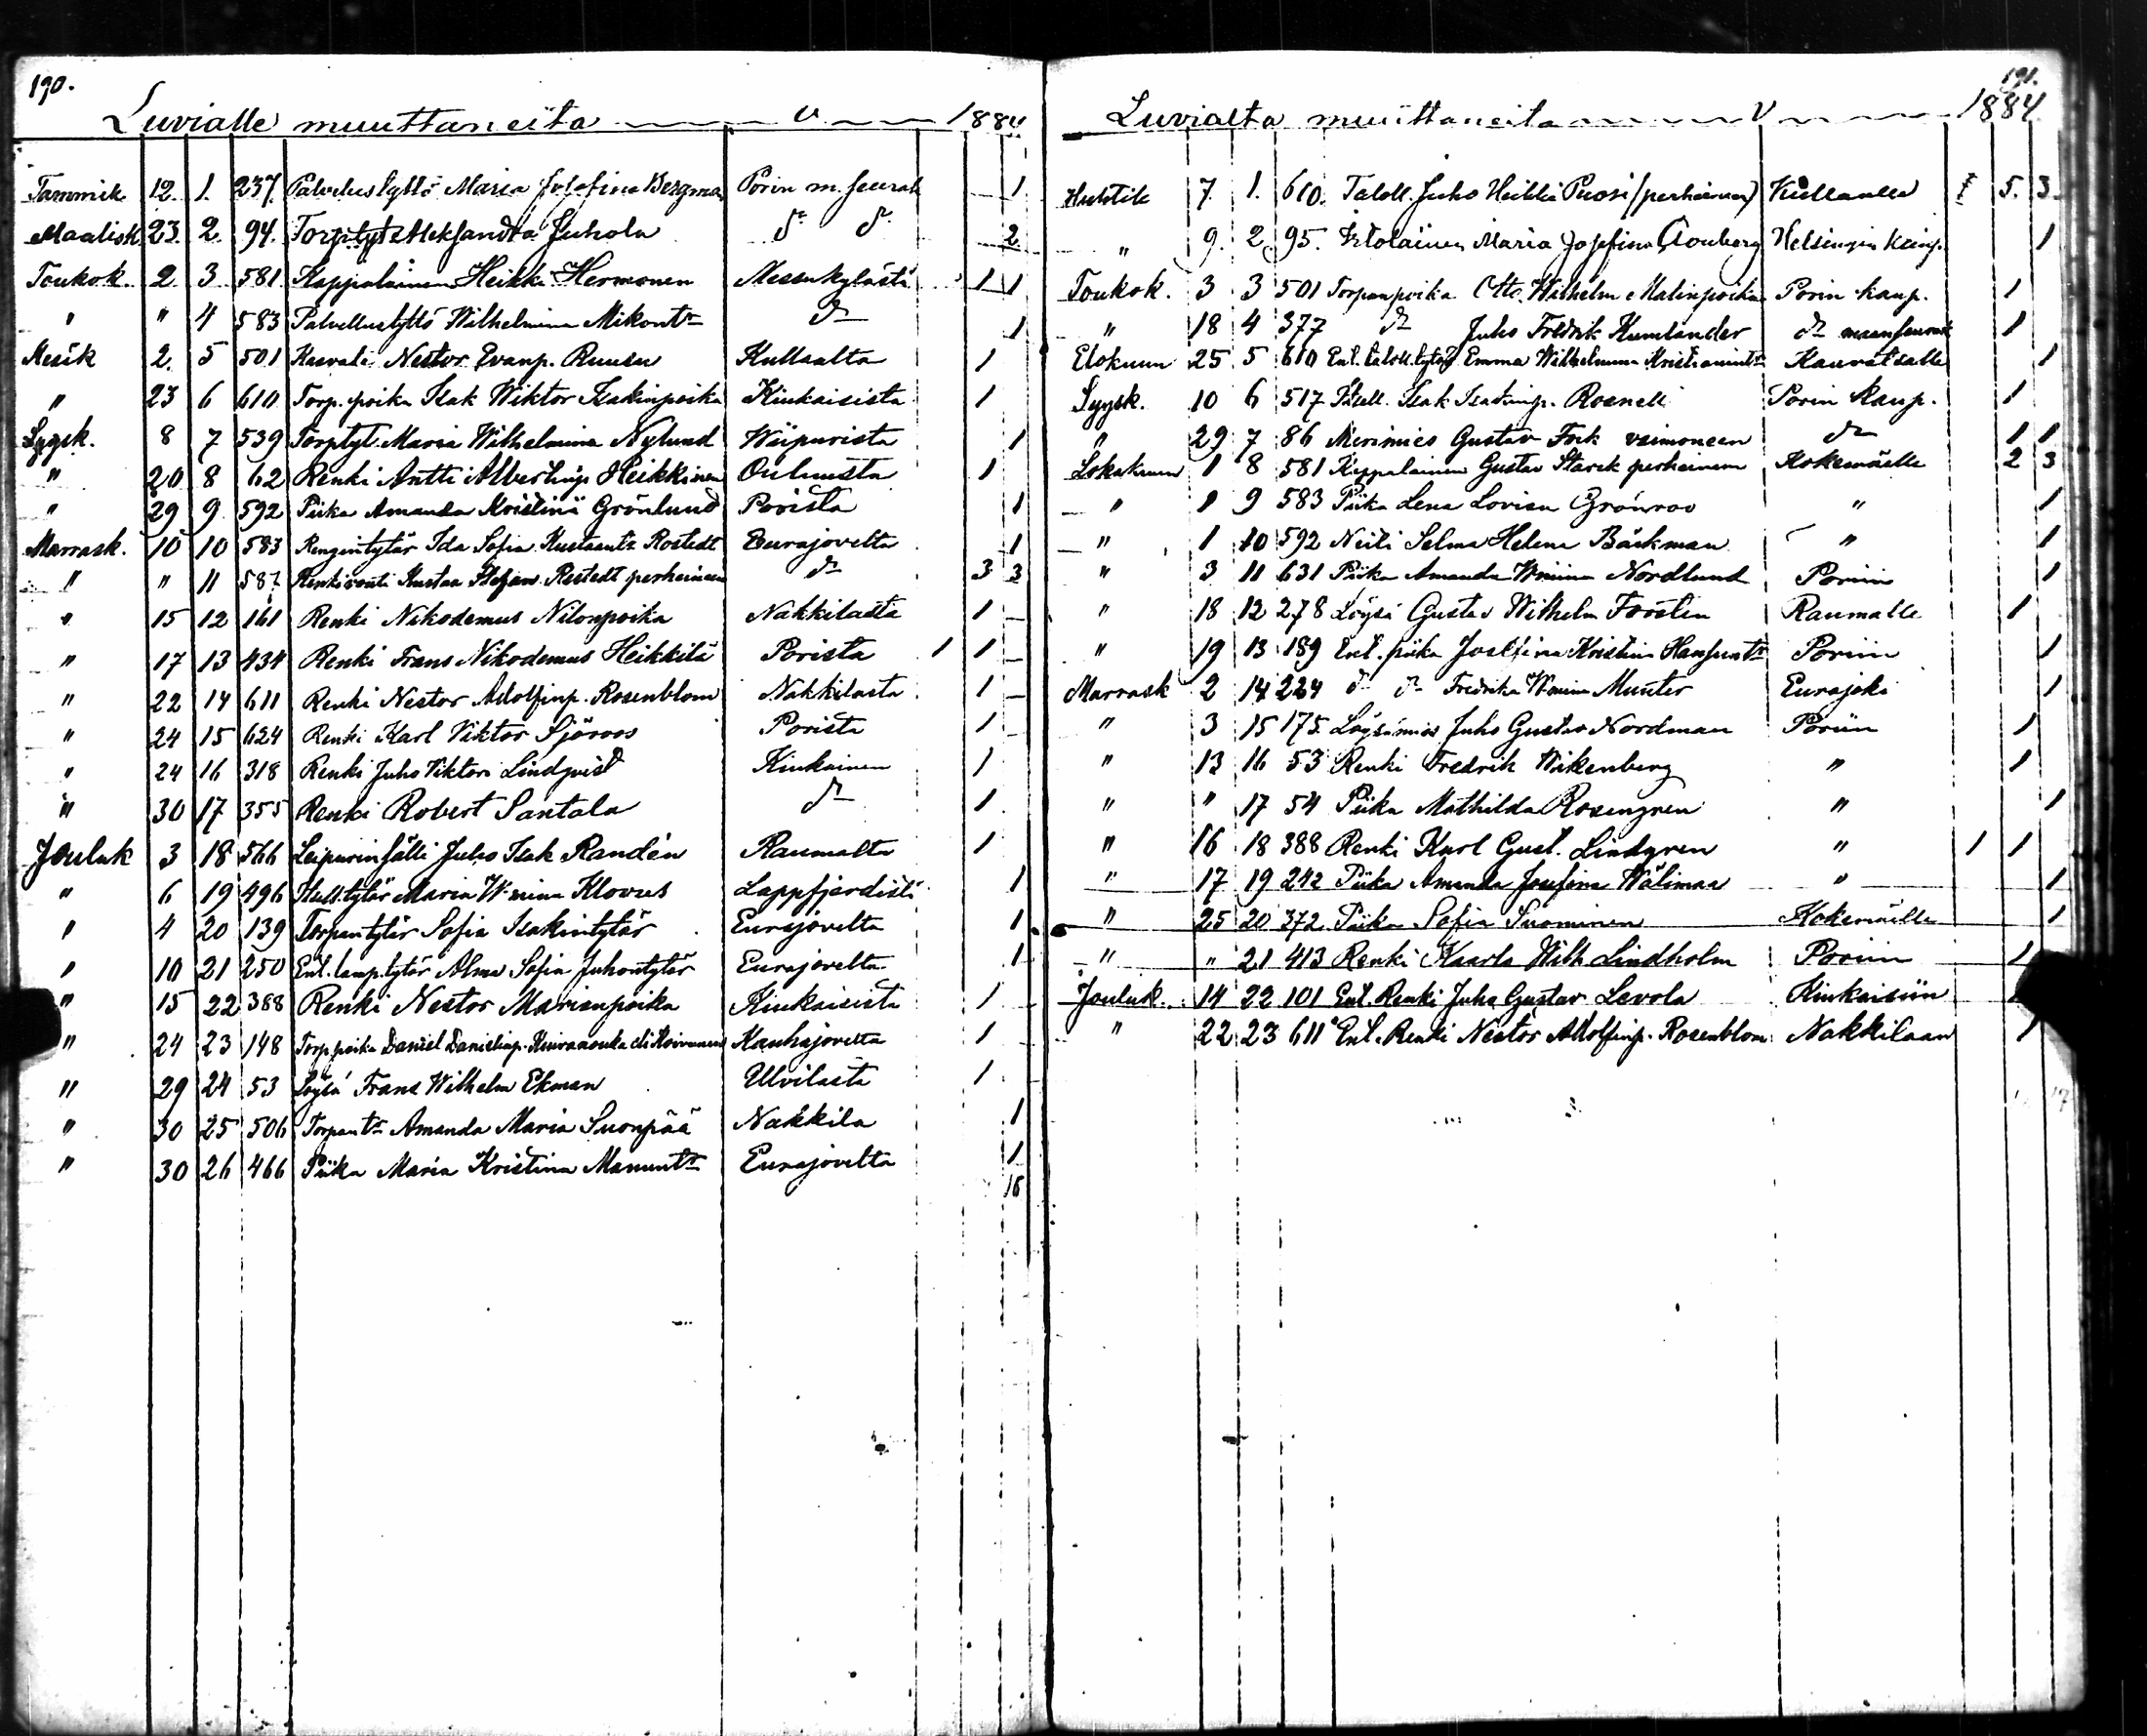 190.
Luvialle muuttaneita v. 1884
Tammik. 12. 1. 237. Palvelustyttö Maria Josefina Bergman Porin m. seurak 1
Maalisk. 23. 2. 94. Torp.tyt. Aleksandra Juhola do do 2
Toukok. 2. 3. 581 Kappalainen Heikki Hermonen Messukylästä 1 1
" " 4 583 Palvellustyttö Wilhelmina Mikontr do 1
Kesäk 2. 5 501 Kasvati Nestor Evanp. Ruusu Kullaalta 1
" 23 6 610 Torp. poika Isak Wiktor Isakinpoika Kiukaisista 1
Syysk. 8 7 539 Torptyt. Maria Wilhelmina Nylund Wiipurista 1
" 20 8 62 Renki Antti Albertinp. Heikkinen Oulusta 1
" 29 9 592 Piika Amanda Kristina Grönlund Porista 1
Marrask. 10 10 583 Rengintytär Ida Sofia Kustaantr Rostedt Eurajoelta 1
" " 11 587 Kustaa Stefan. Rostedt perheineen do 3 3
" 15 12 161 Renki Nikodemus Nilonpoika Nakkilasta 1
" 17 13 434 Renki Frans Nikodemus Heikkilä Porista 1 1
" 22 14 611 Renki Nestor Adolfinp. Rosenblom Nakkilasta 1
" 24 15 624 Renki Karl Viktor Sjöroos Porista 1
" 24 16 318 Renki Juho Viktori Lindqvist Kiukainen 1
" 30 17 355 Renki Robert Santala do 1
Jouluk 3 18 566 Leipurinsälli Juho Isak Randén Raumalta 1
" 6 19 496 tytär Maria W:mina Klovus Lappfjärdistä 1
" 4 20 139 Torpantytär Sofia Isakintytär Eurajoelta 1
" 10 21 250 Ent. lamp.tytär Alma Sofia Juhontytär Eurajoelta 1
" 15 22 388 Renki Nestor Marianpoika Kiukaisista 1
" 24 23 148 Torp.poika Daniel Danielinp. Koivunen Kauhajoelta 1
" 29 24 53 Löysä Frans Wilhelm Ekman Ulvilasta 1
" 30 25 506 Torpantr Amanda Maria Suonpää Nakkila 1
" 30 26 466 Piika Maria Kristina Manuntr Eurajoelta 1
16
191.
Luvialta muuttaneita v 1884
Huhtik 7. 1. 610. Taloll. Juho Heikki Puosi (perheineen) Kullaalle 5. 3.
" 9. 2. 95. Itsellinen Maria Josefina Glouberg Helsingin kaup. 1
Toukok. 3 3 501 Torpanpoika Otto Wilhelm Matinpoika Porin kaup. 1
" 18 4 377 do Juho Fredrik Kumlander do maaseurak 1
Elokuun 25 5 610 Ent. taloll. tytär Emma Wilhelmina Kristiamintr Kauvatsalle 1
Syysk. 10 6 517 Itsell. Isak Isakinp. Rosnell Porin kaup. 1
" 29 7 86 Merimies Gustav Fork vaimoneen do 1 1
Lokakuun 1 8 581 Kappalainen Gustav Starck perheineen Kokemäelle 2 3
" 1 9 583 Piika Lena Lovisa Grönroo " 1
" 1 10 592 Neiti Selma Helena Bäckman " 1
" 3 11 631 Piika Amanda W:mina Nordlund Poriin 1
" 18 12 278 Löysä Gustav Wilhelm Forsten Raumalle 1
" 19 13 189 Ent. piika Josefina Kristina Hansuntr Poriin 1
Marrask 2 14 224 do do Fredrika W:mina Munter Eurajoki 1
" 3 15 175. Löysämies Juho Gustav Nordman Poriin 1
" 13 16 53 Renki Fredrik Wikenberg " 1
" " 17 54 Piika Mathilda Rosengren " 1
" 16 18 388 Renki Karl Gust. Lindgren " 1 1
" 17 19 242 Piika Amanda Josefina Wälimaa " 1
" 25 20 372 Piika Sofia Suominen Kokemäelle 1
" " 21 413 Renki Kaarlo Wilh. Lindholm Poriin 1
Jouluk. 14 22 101 Ent. Renki Juho Gustav Levola Kiukaisiin
" 22 23 611 Ent. Renki Nestor Adolfinp. Rosenblom Nakkilaan 1